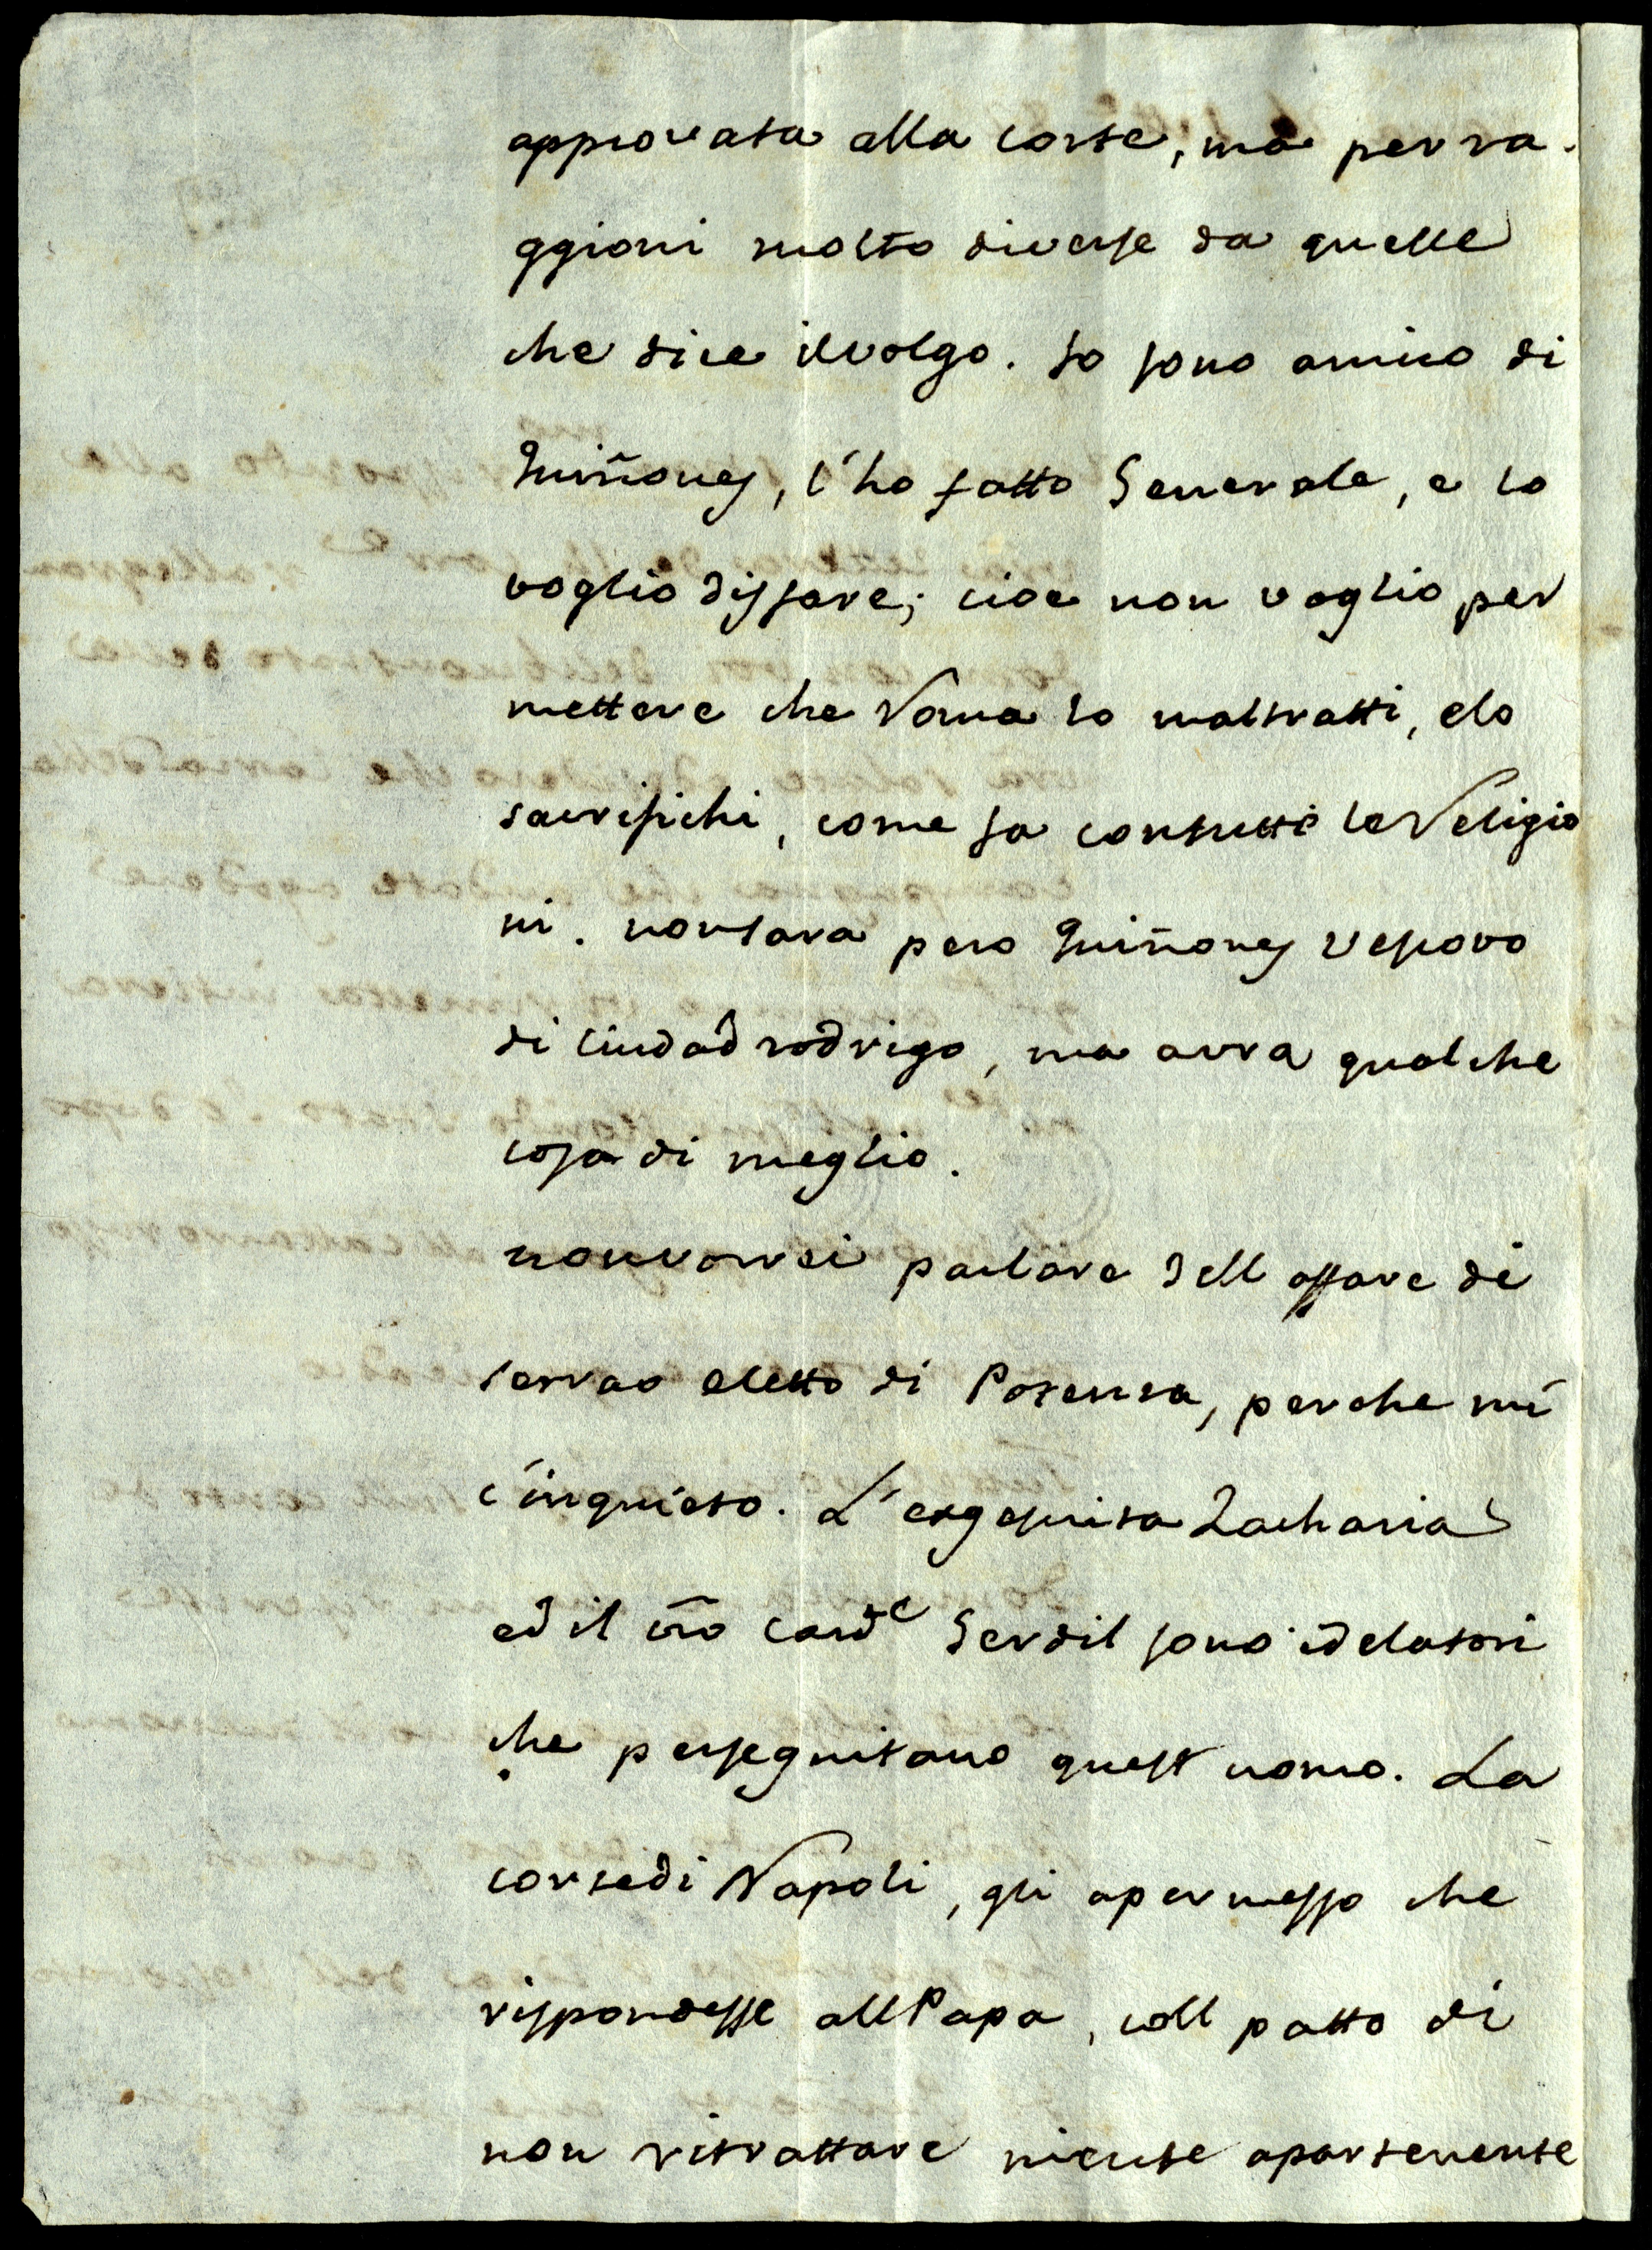 approvata alla corte, ma per ra-
ggioni molto diverse da quelle
che dice il volgo. Io sono amico di
Quiñones, l'ho fatto Generale, e lo
voglio disfare; cioe non voglio per
mettere che Roma lo maltratti, e lo
sacrifichi, come fa con tutti le Religio
ni. non sara pero Quiñones Vescovo
di Ciudad rodrigo, ma avra qualche
cosa di meglio.
non vorrei parlare dell affare di
serrao eletto di Potenza, perche mi
c'inquieto. L'exgesuita Zacharia
ed il vro Card.e Gerdil sono i delatori
che perseguitano quest uomo. La
corte di Napoli, gli a permesso che
rispondesse all Papa, coll patto di
non ritrattare niente apartenente